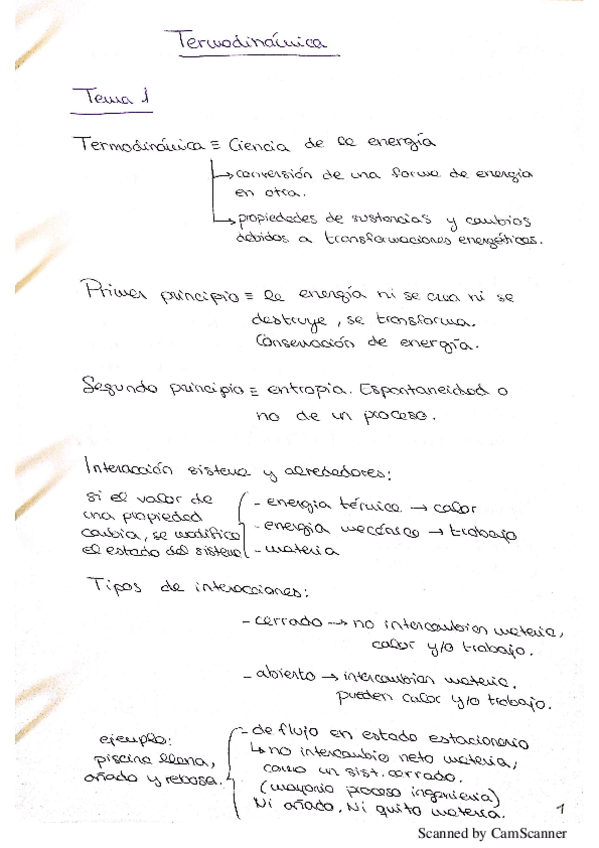 Termodinámica
Tema 1
Termodinámica ≡ Ciencia de la energía
→ conversión de una forma de energía
en otra.
→ propiedades de sustancias y cambios
debidos a transformaciones energéticas.
Primer principio ≡ la energía ni se crea ni se
destruye, se transforma.
Conservación de energía.
Segundo principio ≡ entropía. Espontaneidad o
no de un proceso.
Interacción sistema y alrededores:
si el valor de
una propiedad
cambia, se modifica
el estado del sistema
- energía térmica → calor
- energía mecánica → trabajo
- materia
Tipos de interacciones:
- cerrado → no intercambian materia,
calor y/o trabajo.
- abierto → intercambian materia.
pueden calor y/o trabajo.
ejemplo:
piscina llena,
añado y rebosa.
- de flujo en estado estacionario
↳ no intercambio neto materia,
como un sist. cerrado.
(mayoría proceso ingeniería)
Ni añado, Ni quito materia.
1
Scanned by CamScanner